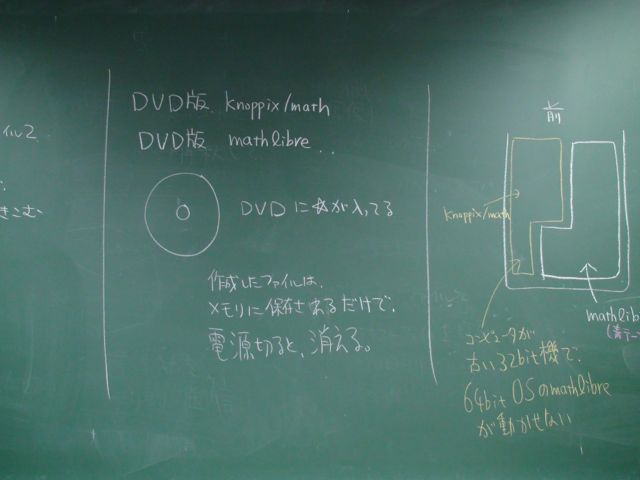 イル2
きこむ
DVD版 knoppix/math
DVD版 mathlibre..
DVDに☆が入ってる
作成したファイルは、
メモリに保存されるだけで、
電源切ると、消える。
前
knoppix/math
mathlib
コンピュータが
古い32bit機で、
64bit OSのmathlibre
が動かせない